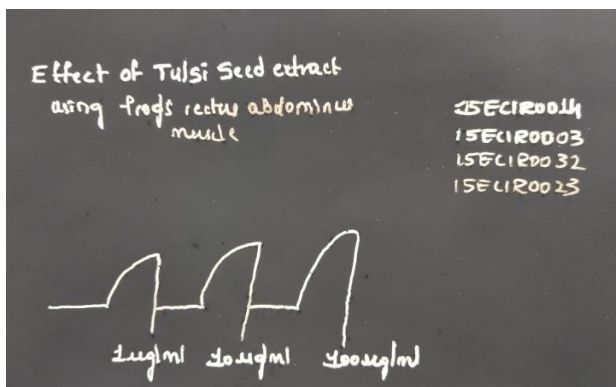 Effect of Tulsi Seed extract
using frogs rectus abdominus
muscle
15ECIR0014
15ECIR0003
15ECIR0032
15ECIR0023
1µg/ml 10µg/ml 100µg/ml